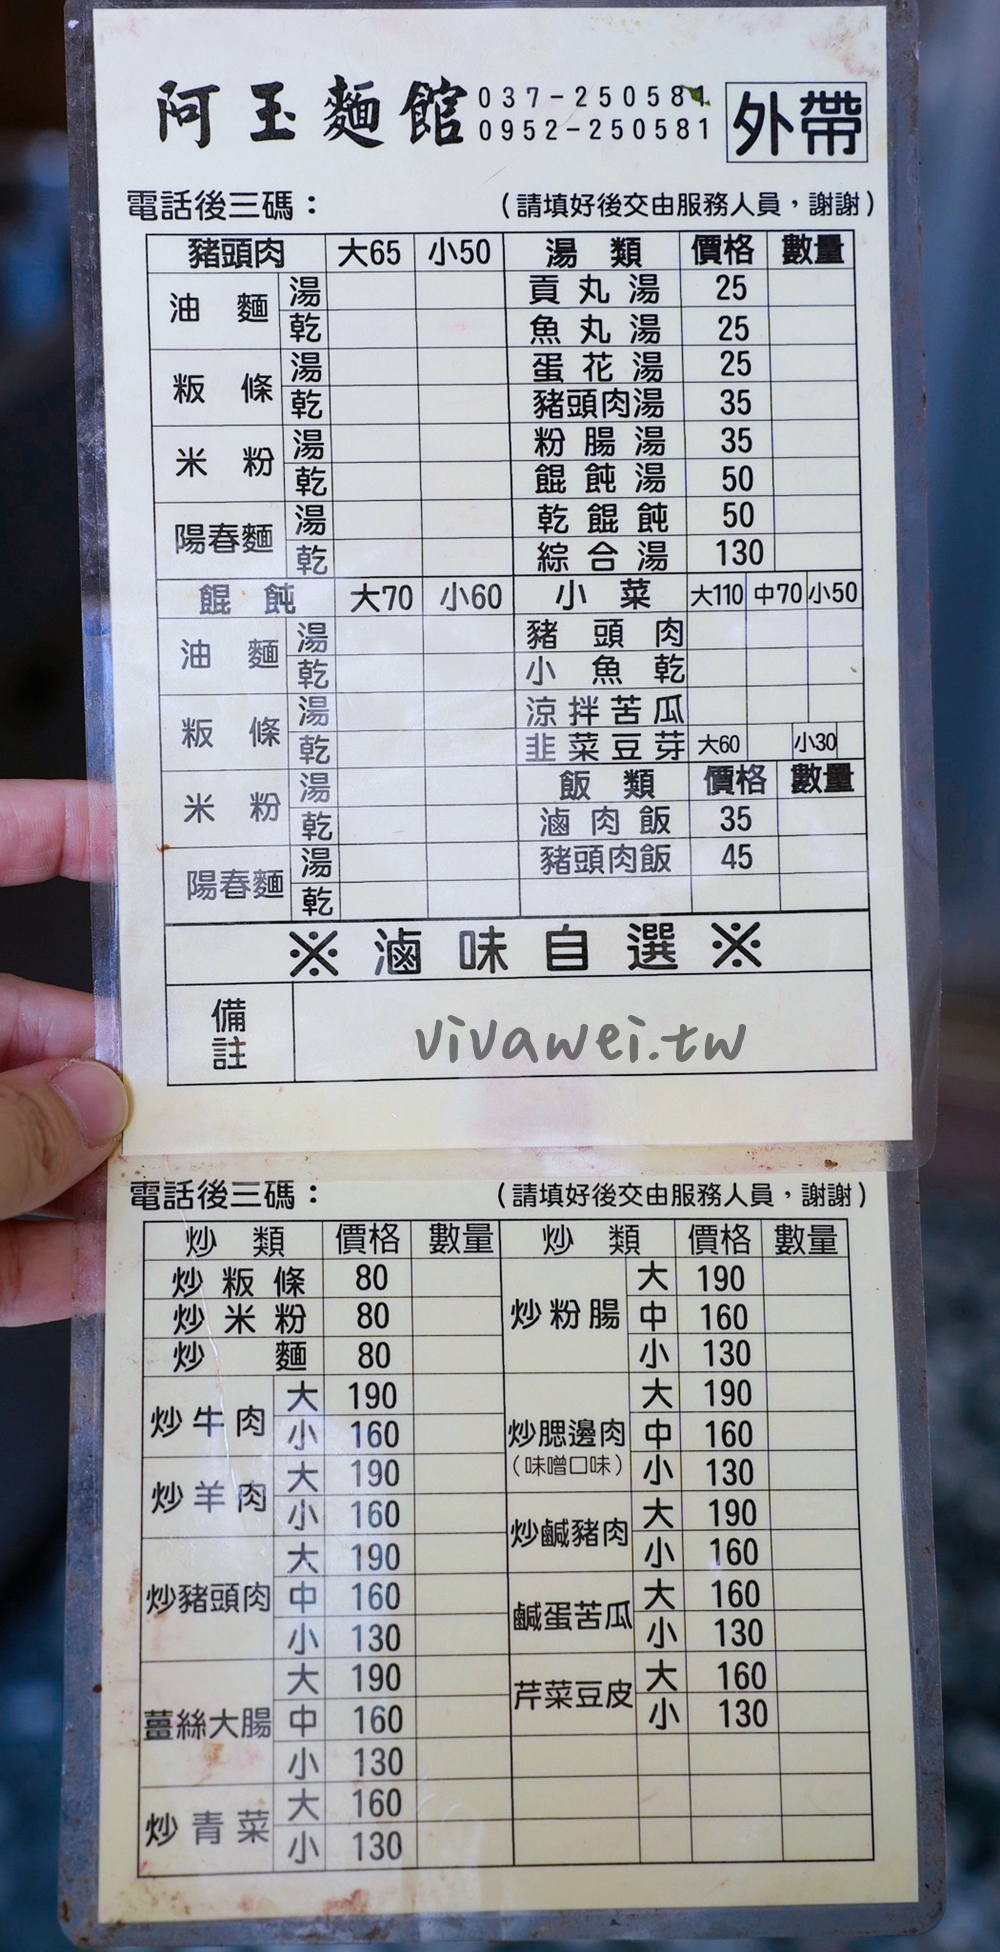 阿玉麵館 037-250581 0952-250581 外帶
電話後三碼： （請填好後交由服務人員，謝謝）
豬頭肉 大65 小50 湯類 價格 數量
油麵 湯 貢丸湯 25
乾 魚丸湯 25
粄條 湯 蛋花湯 25
乾 豬頭肉湯 35
米粉 湯 粉腸湯 35
乾 餛飩湯 50
陽春麵 湯 乾餛飩 50
乾 綜合湯 130
餛飩 大70 小60 小菜 大110 中70 小50
油麵 湯 豬頭肉
乾 小魚乾
粄條 湯 涼拌苦瓜
乾 韭菜豆芽 大60 小30
米粉 湯 飯類 價格 數量
乾 滷肉飯 35
陽春麵 湯 豬頭肉飯 45
乾
※滷味自選※
備註
vivawei.tw
電話後三碼： （請填好後交由服務人員，謝謝）
炒類 價格 數量 炒類 價格 數量
炒粄條 80 炒粉腸 大 190
炒米粉 80 中 160
炒麵 80 小 130
炒牛肉 大 190 炒腮邊肉 大 190
小 160 （味噌口味） 中 160
炒羊肉 大 190 小 130
小 160 炒鹹豬肉 大 190
炒豬頭肉 大 190 小 160
中 160 鹹蛋苦瓜 大 160
小 130 小 130
薑絲大腸 大 190 芹菜豆皮 大 160
中 160 小 130
小 130
炒青菜 大 160
小 130